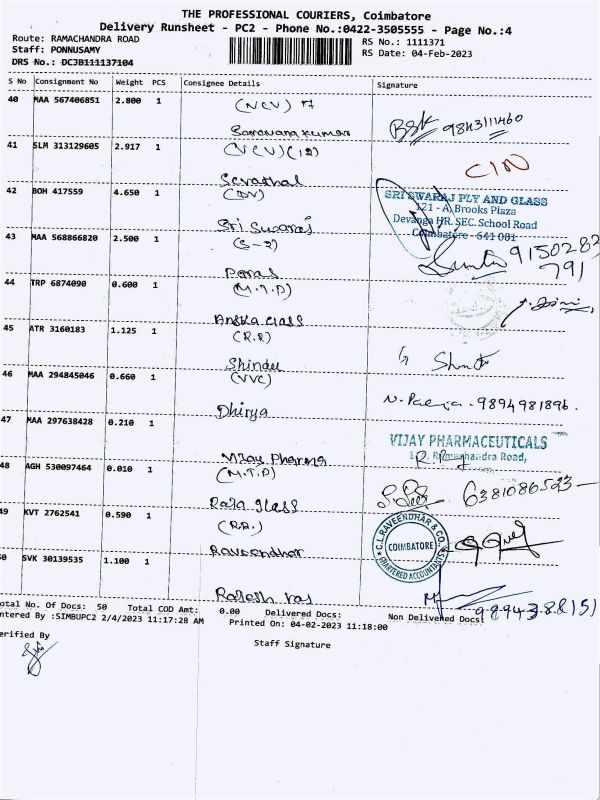 THE PROFESSIONAL COURIERS, Coimbatore
Delivery Runsheet - PC2 - Phone No.:0422-3505555 - Page No.:4
Route: RAMACHANDRA ROAD
RS No.: 1111371
Staff: PONNUSAMY
RS Date: 04-Feb-2023
DRS No.: DCJB111137104
S No Consignment No Weight PCS Consignee Details Signature
40 MAA 567406851 2.800 1 (NCV)
Saravanakumar 9843111460
41 SLM 313129605 2.917 1 (NCV)(12)
CIN
42 BOH 417559 4.650 1
SRI SWARAJ PLY AND GLASS
121 - A, Brooks Plaza
Devanga HR. SEC. School Road
Coimbatore - 641 001
Sri Swaraj
43 MAA 568866820 2.500 1 (S-2)
9150283
791
Paras
44 TRP 6874090 0.600 1 (M.T.P)
45 ATR 3160183 1.125 1 (R.R)
Shindu
46 MAA 294845046 0.660 1 (VVC)
Dhirya 9894981896.
47 MAA 297638428 0.210 1
VIJAY PHARMACEUTICALS
Ramachandra Road,
Vijay Pharma
48 AGH 530097464 0.010 1 (M.T.P)
6381086523
Raja glass
49 KVT 2762541 0.590 1 (R.R.)
C.L.RAVEENDHAR & CO.
COIMBATORE
CHARTERED ACCOUNTANTS
Raveendhar
50 SVK 30139535 1.100 1
Rajesh raj
Total No. Of Docs: 50 Total COD Amt: 0.00 Delivered Docs: Non Delivered Docs:
Entered By :SIMBUPC2 2/4/2023 11:17:28 AM Printed On: 04-02-2023 11:18:00
Verified By
Staff Signature